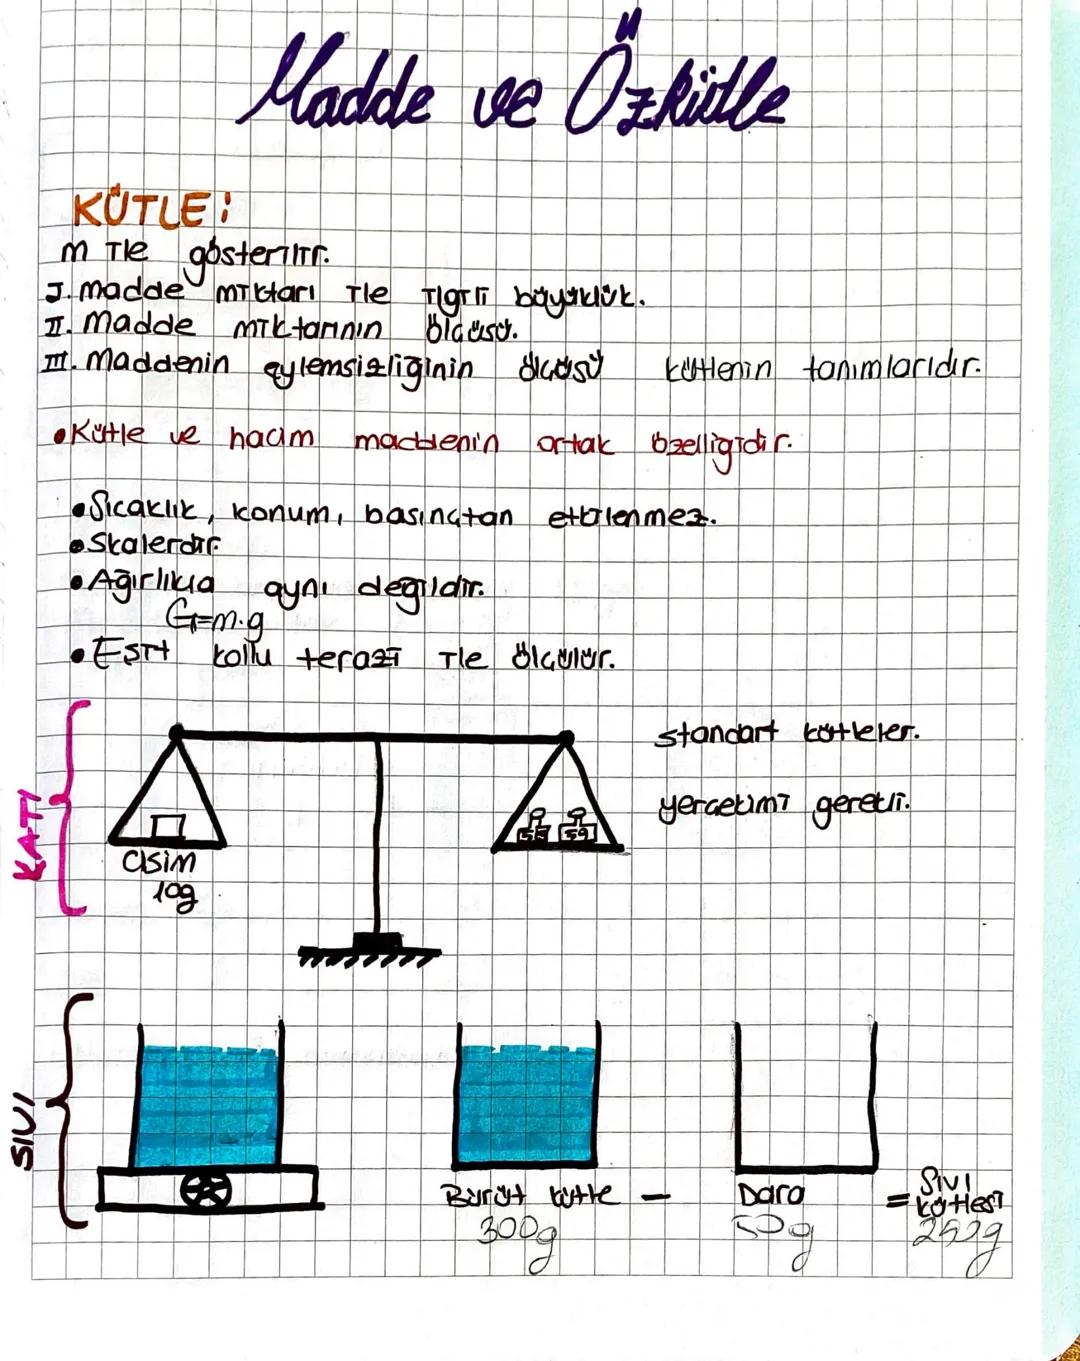 Madde ve Özkütle
KÜTLE:
m ile gösterilir.
I. madde miktarı ile ilgili büyüklük.
II. Madde miktarının ölçüsü.
III. Maddenin eylemsizliğinin ölçüsü kütlenin tanımlarıdır.
• Kütle ve hacim maddenin ortak özelliğidir.
• Sıcaklık, konum, basınçtan etkilenmez.
• Skalerdir.
• Ağırlıkla aynı değildir.
G=m.g
• Eşit kollu terazi ile ölçülür.
KATI
standart kütleler.
yerçekimi gerekli.
5g 5g
cisim
10g
SIVI
Bürüt kütle - Dara = Sıvı kütlesi
300g 50g 250g